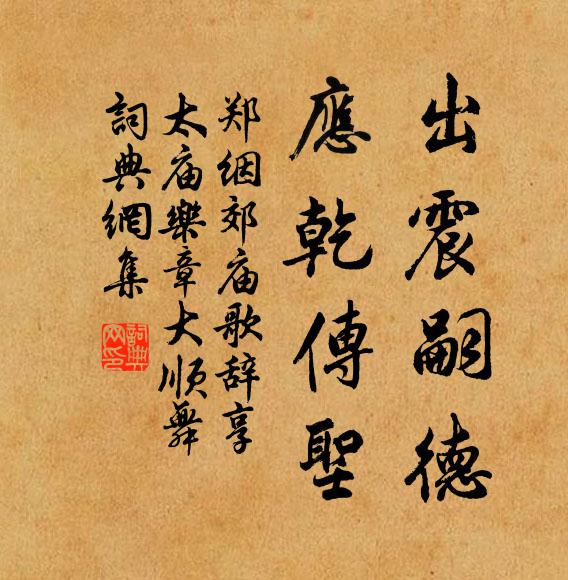 出震嗣德
應乾傳聖
郑絪郊庙歌辞享
太庙樂章大順舞
詞典網集
詞典网印